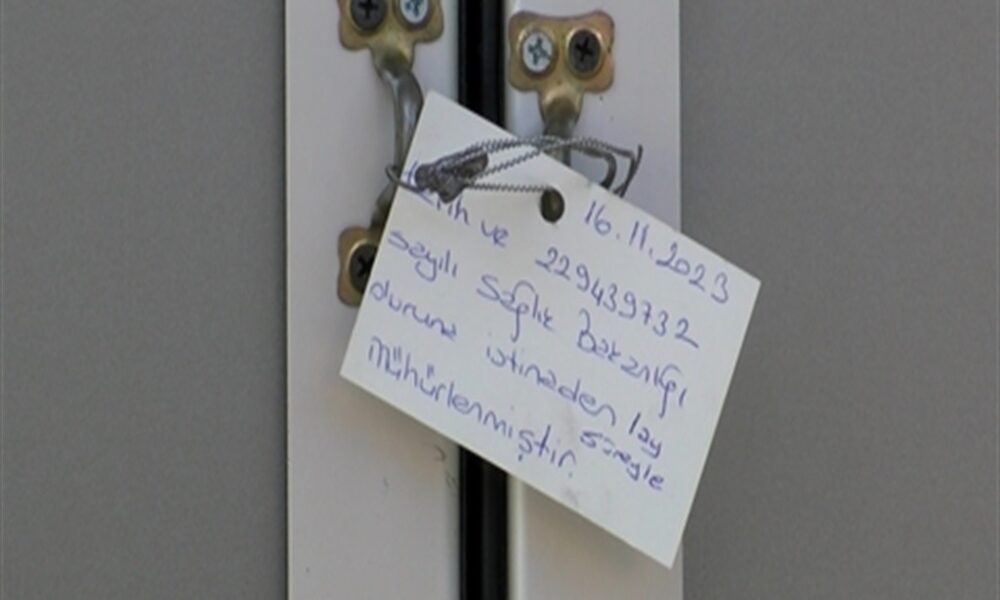 16.11.2023
tarih ve 229439732
sayılı Sağlık Bakanlığı
duruna istinaden 1 ay
süreyle
Mühürlenmiştir.